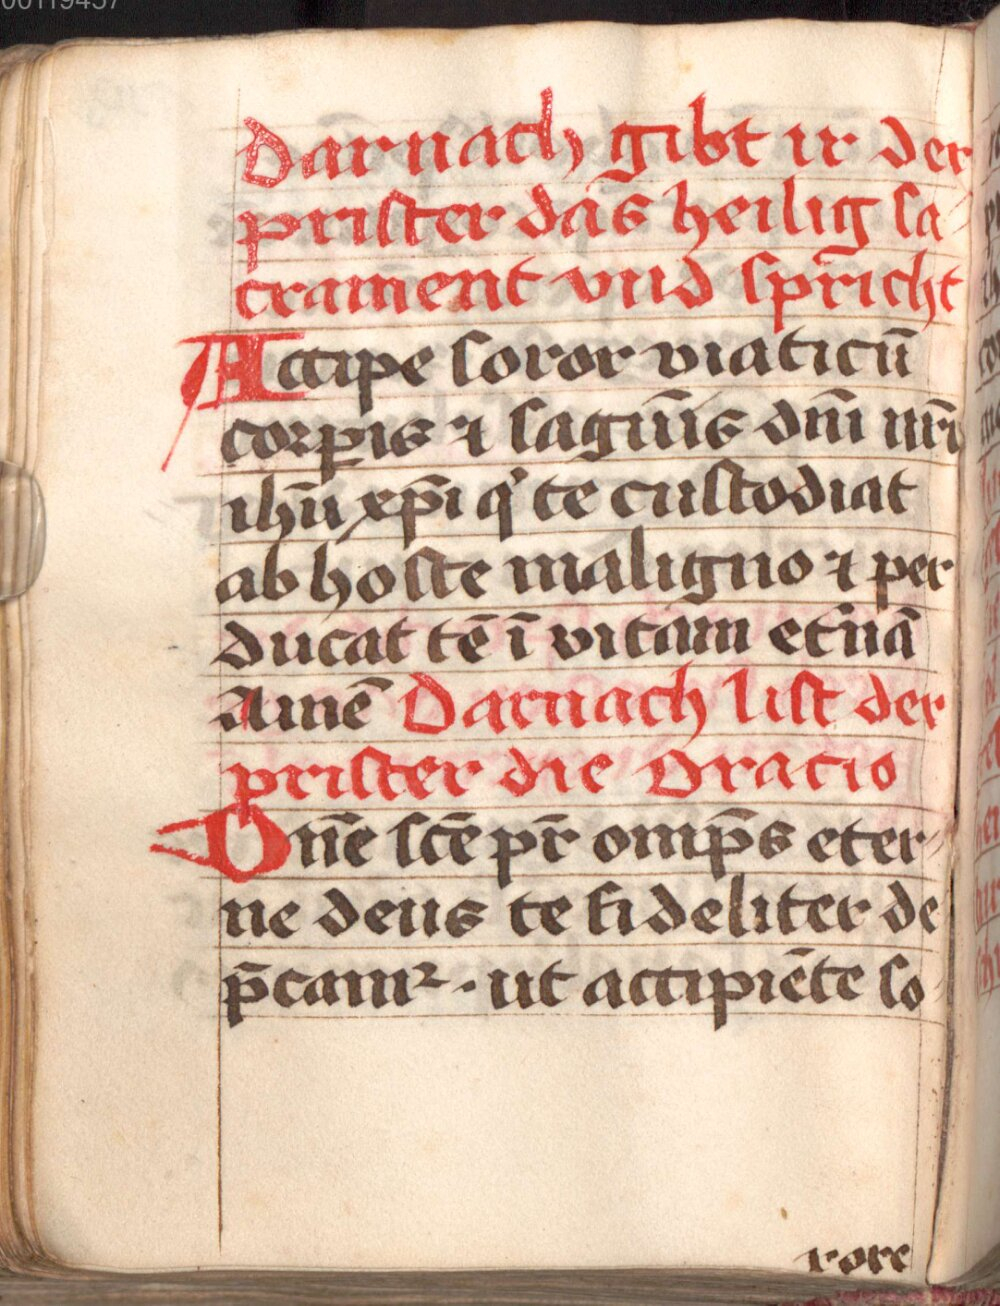 00119457
Darnach gibt ir der
prister das heilig sa-
crament vnd spricht
Accipe soror viaticū
corpis ⁊ sagu̅is dn̄i nr̄i
ihū xp̄i q' te custodiat
ab hoste maligno ⁊ per
ducat tē ī vitam et̄nā
Amē Darnach list der
prister die Oratio
Dn̄e scē pr̄ omp̄s eter-
ne deus te fideliter de
p̄camꝛ · ut accipiēte so-
rore